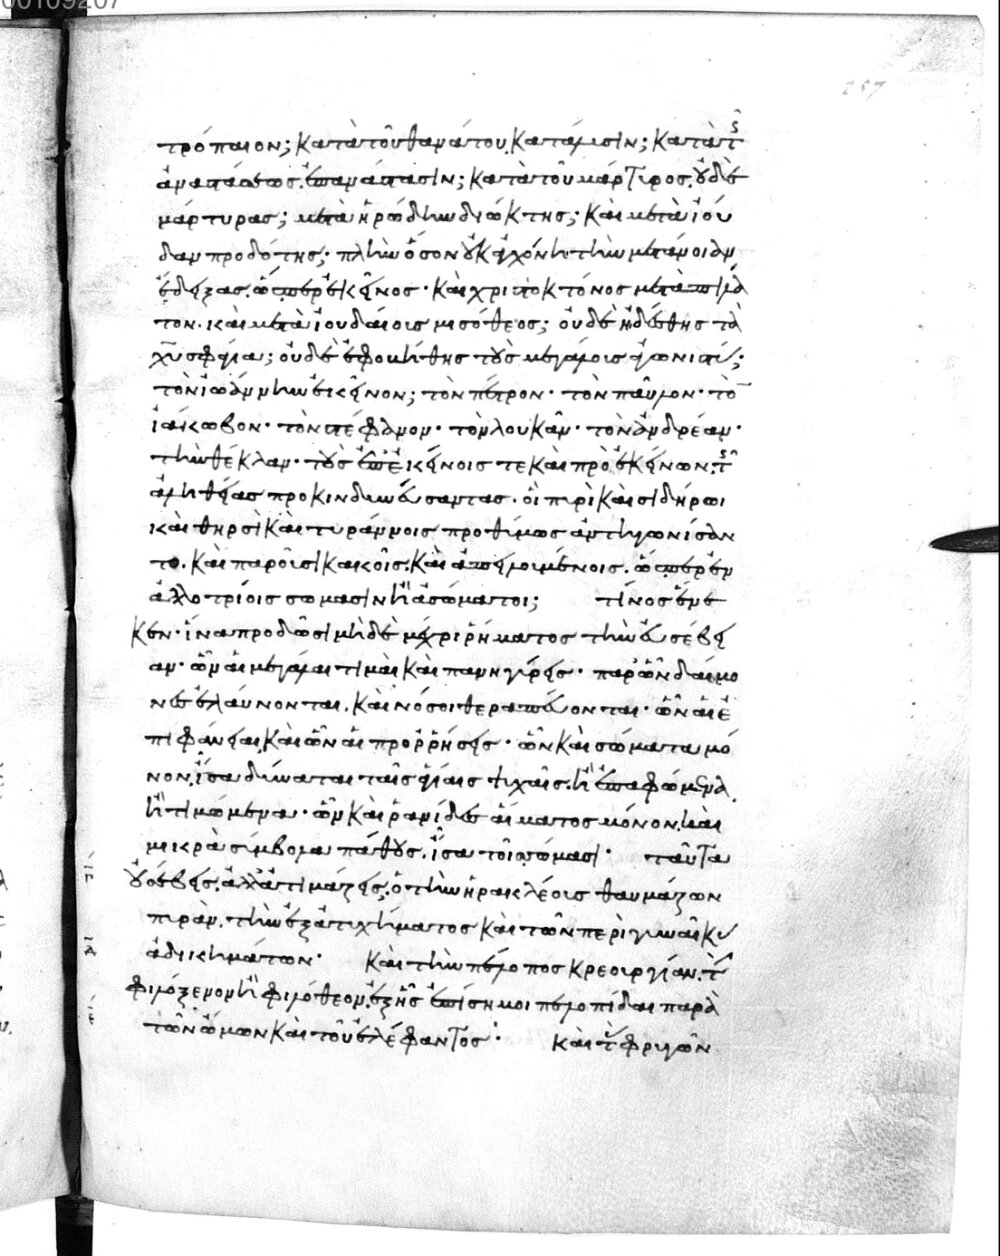 257
τρόπαιον; κατὰ τοῦ θανάτου κατάλυσιν; κατὰ τῆς
ἀναπαύσεως. ἐπανάπασιν; κατὰ τοῦ μάρτυρος. οὐδὲ
μάρτυρας; μετὰ ἡρώδην διώκτης; καὶ μετὰ ἰού
δαν προδότης; πλὴν ὅσον οὐκ ἀγχόνη τὴν μετάνοιαν
ἔδειξας. ὥσπερ ἐκεῖνος· καὶ χριστοκτόνος μετὰ πιλᾶ
τον. καὶ μετὰ ἰουδαίοις μισόθεος; οὐδὲ ἠδέσθης τὰ
χυ σφάγια; οὐδὲ ἐφοβήθης τοὺς μεγάλους ἀγωνιστάς;
τὸν ἰωάννην ἐκεῖνον; τὸν πέτρον· τὸν παῦλον· τὸν
ἰάκωβον· τὸν στέφανον· τὸν λουκᾶν· τὸν ἀνδρέαν·
τὴν θέκλαν· τοὺς ἐπ' ἐκείνοις τε καὶ πρὸ ἐκείνων. τῆς
ἀληθείας προκινδυνεύσαντας. οἳ πυρὶ καὶ σιδήρωι
καὶ θηρσὶ καὶ τυράννοις προθύμως ἀντηγωνίσαν
το. καὶ παροῦσι κακοῖς. καὶ ἀπειλουμένοις. ὥσπερ ἐν
ἀλλοτρίοις σώμασιν ἢ ἀσώματοι; τίνος ἕνε
κεν· ἵνα προδῶσι μηδὲ μέχρι ῥήματος τὴν εὐσέβει
αν· ὧν αἱ μεγάλαι τιμαὶ καὶ πανηγύρεις· παρ' ὧν δαίμο
νες ἐλαύνονται, καὶ νόσοι θεραπεύονται· ὧν αἱ ἐ
πιφάνειαι καὶ ὧν αἱ προρρήσεις· ὧν καὶ σώματα μό
νον ἴσα δύναται ταῖς ἁγίαις ψυχαῖς. ἢ ἐπαφώμενα
ἢ τιμώμενα· ὧν καὶ ῥανίδες αἵματος μόνον. καὶ
μικρὰ σύμβολα πάθους. ἴσα τοῖς σώμασι· ταῦτα
γ οὐ σέβεις. ἀλλ' ἀτιμάζεις. ὁ τὴν ἡρακλέους θαυμάζων
πυρὰν. τὴν ἐξ ἀτυχήματος καὶ τῶν περὶ γυναῖκας
δ ἀδικημάτων· καὶ τὴν πέλοπος κρεουργίαν. τὴν
φιλόξενον ἢ φιλόθεον. ἐξ ἧς ἐπίσημοι πελοπίδαι παρὰ
ε τῶν ὤμων καὶ τοῦ ἐλέφαντος· καὶ τὰς φρυγῶν